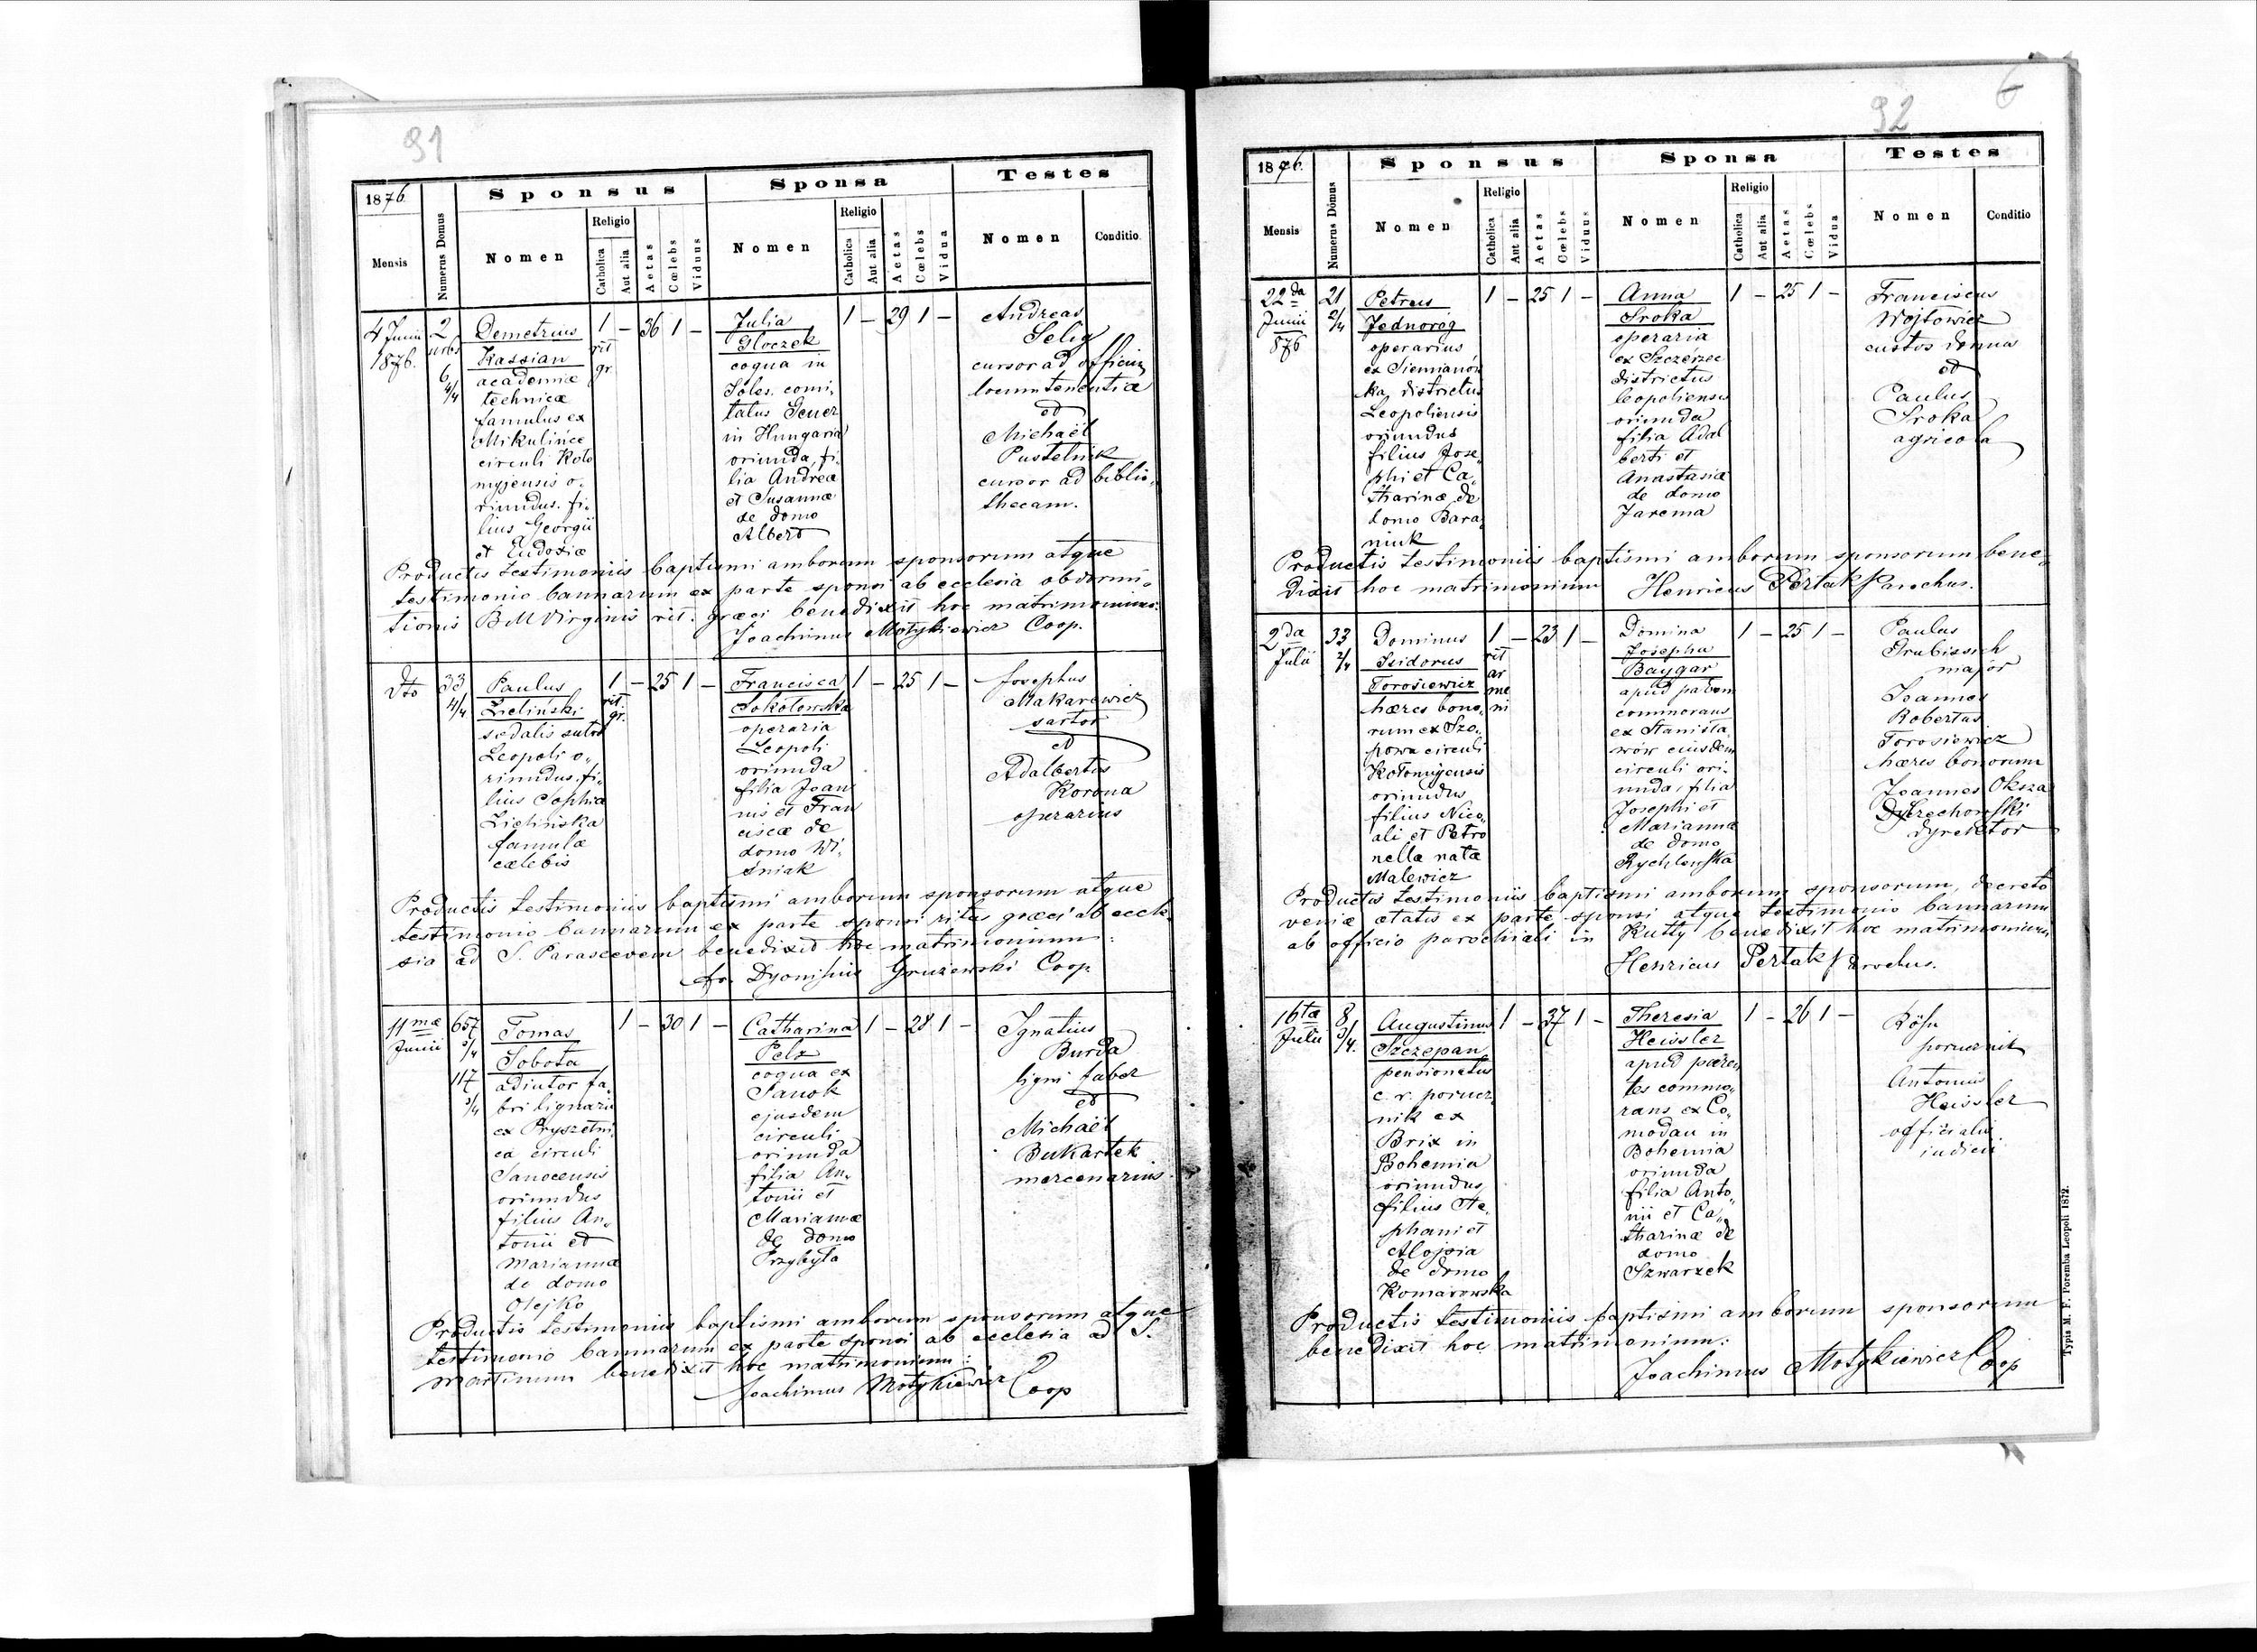 91
1876.
Mensis
Numerus Domus
Sponsus
Nomen
Religio
Catholica
Aut alia
Aetas
Cœlebs
Vidus
Sponsa
Nomen
Religio
Catholica
Aut alia
Aetas
Cœlebs
Vidua
Testes
Nomen
Conditio
4 Junii
1876.
2
urbs
6
4/4
Demetrius
Kassian
academiæ
technicæ
famulus ex
Mikulińce
circuli Koło
myjensis o-
riundus. fi-
lius Georgii
et Eudoxiæ
1 – 36 1 –
rit
gr.
Julia
Gloczek
coqua in
Soles. comi-
tatus
in Hungaria
oriunda, fi-
lia Andreæ
et Susannæ
de domo
Albert
1 – 29 1 –
Andreas
Selig
cursor ad officium
locumtenentiæ
et
Michaël
Pustelnik
cursor ad biblio-
thecam.
Productis testimoniis baptismi amborum sponsorum atque
testimonio bannarum ex parte sponsi ab ecclesia obdormi-
tionis B M Virginis rit. græci benedixit hoc matrimonium:
Joachimus Motykiewicz Coop.
dto
33
4/4
Paulus
Zieliński
sodalis sutor
Leopoli o-
riundus, fi-
lius Sophiæ
Zielińska
famulæ
cælebis
1 – 25 1 –
rit.
gr.
Francisca
Sokołowska
operaria
Leopoli
oriunda
filia Joan
nis et Fran
ciscæ de
domo Wi-
śniak
1 – 25 1 –
Josephus
Makarewicz
sartor
et
Adalbertus
Korona
operarius
Productis testimoniis baptismi amborum sponsorum atque
testimonio bannarum ex parte sponsi ritus græci ab eccle-
sia ad S. Parascevem benedixit hoc matrimonium:
fr. Dyonisius Grużewski Coop.
11mæ
Junii
657
3/4
117
3/4
Tomas
Sobota
adiutor fa-
bri lignarii
ex Pryszetni-
ca circuli
Sanocensis
oriundus
filius An-
tonii et
Mariannæ
de domo
Olejko
1 – 30 1 –
Catharina
Pelz
coqua ex
Sanok
ejusdem
circuli
oriunda
filia An-
tonii et
Mariannæ
de domo
Przybyła
1 – 28 1 –
Ignatius
Burda
ligni faber
et
Michaël
Bukartek
mercenarius.
Productis testimoniis baptismi amborum sponsorum atque
testimonio bannarum ex parte sponsi ab ecclesia ad S.
Martinum benedixit hoc matrimonium:
Joachimus Motykiewicz Coop
92
6
1876.
Mensis
Numerus Domus
Sponsus
Nomen
Religio
Catholica
Aut alia
Aetas
Cœlebs
Vidus
Sponsa
Nomen
Religio
Catholica
Aut alia
Aetas
Cœlebs
Vidua
Testes
Nomen
Conditio
22da
Junii
876
21
2/4
Petrus
Jednoróg
operarius
ex Siemianów
ka, districtus
Leopoliensis
oriundus
filius Jose-
phi et Ca-
tharinæ de
domo Bara-
niuk
1 – 25 1 –
Anna
Sroka
operaria
ex Szczerzec
districtus
leopoliensis
oriunda
filia Adal
berti et
Anastasiæ
de domo
Jarema
1 – 25 1 –
Franciscus
Wojtowicz
custos domus
et
Paulus
Sroka
agricola
Productis testimoniis baptismi amborum sponsorum bene-
dixit hoc matrimonium Henricus Pertak Parochus.
2da
Julii
33
2/4
Dominus
Isidorus
Torosiewicz
hæres bono-
rum ex Szo-
powa circuli
Kołomyjensis
oriundus
filius Nico-
ali et Petro
nellæ natæ
Malewicz
1 – 23 1 –
rit
ar
me
ni
Domina
Josepha
Baygar
apud patrem
commorans
ex Stanisła-
wów eiusdem
circuli ori-
unda, filia
Josephi et
Mariannæ
de domo
Rychlowska
1 – 25 1 –
Paulus
Grubissich
major
Joannes
Robertus
Torosiewicz
hæres bonorum
Joannes Oksza
Orzechowski
dyrektor
Productis testimoniis baptismi amborum sponsorum, decreto
veniæ ætatis ex parte sponsi atque testimonio bannarum
ab officio parochiali in Kutty benedixit hoc matrimonium
Henricus Pertak Parochus.
16tæ
Julii
8
3/4.
Augustinus
Szczepan
pensionatus
c. r. porucz-
nik ex
Brix in
Bohemia
oriundus
filius Ste-
phani et
Aloysia
de domo
Komarowska
1 – 37 1 –
Theresia
Heissler
apud paren-
tes commo-
rans ex Co-
modau in
Bohemia
oriunda
filia Anto-
nii et Ca-
tharinæ de
domo
Szwarzek
1 – 26 1 –
Köhn
porucznik
Antonius
Heissler
officialis
iudicii
Productis testimoniis baptismi amborum sponsorum
benedixit hoc matrimonium:
Joachimus Motykiewicz Coop
Typis M. F. Poremba Leopoli 1872.